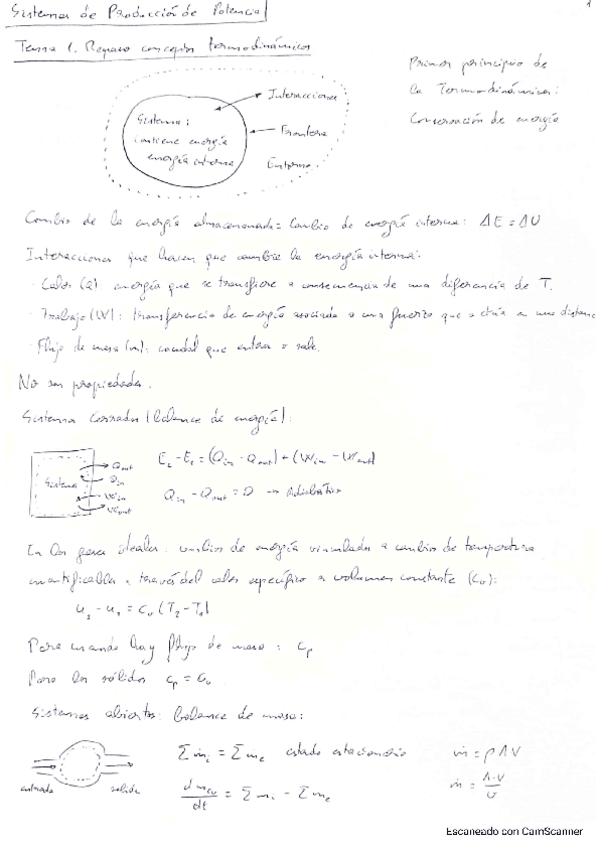 1
Sistemas de Producción de Potencia
Tema 1. Repaso conceptos termodinámicos
Primer principio de
la Termodinámica:
Conservación de energía
Interacciones
Sistema:
contiene energía
energía interna
Frontera
Entorno
Cambio de la energía almacenada = Cambio de energía interna: ΔE = ΔU
Interacciones que hacen que cambie la energía interna:
· Calor (Q): energía que se transfiere a consecuencia de una diferencia de T.
· Trabajo (W): transferencia de energía asociada a una fuerza que actúa a una distanc
· Flujo de masa (m): caudal que entra o sale.
No son propiedades.
Sistemas cerrados (balance de energía):
Sistema
Qout
Qin
Win
Wout
E₂ - E₁ = (Qin - Qout) + (Win - Wout)
Qin - Qout = 0 → Adiabático
En los gases ideales: cambios de energía vinculados a cambios de temperatura
cuantificables a través del calor específico a volumen constante (cv):
u₂ - u₁ = cv (T₂ - T₁)
Para cuando hay flujo de masa: cp
Para los sólidos cp = cv
Sistemas abiertos: balance de masa:
entrada
salida
Σṁi = Σṁe estado estacionario
dmcv/dt = Σṁi - Σṁe
ṁ = ρAV
ṁ = A·V/v
Escaneado con CamScanner